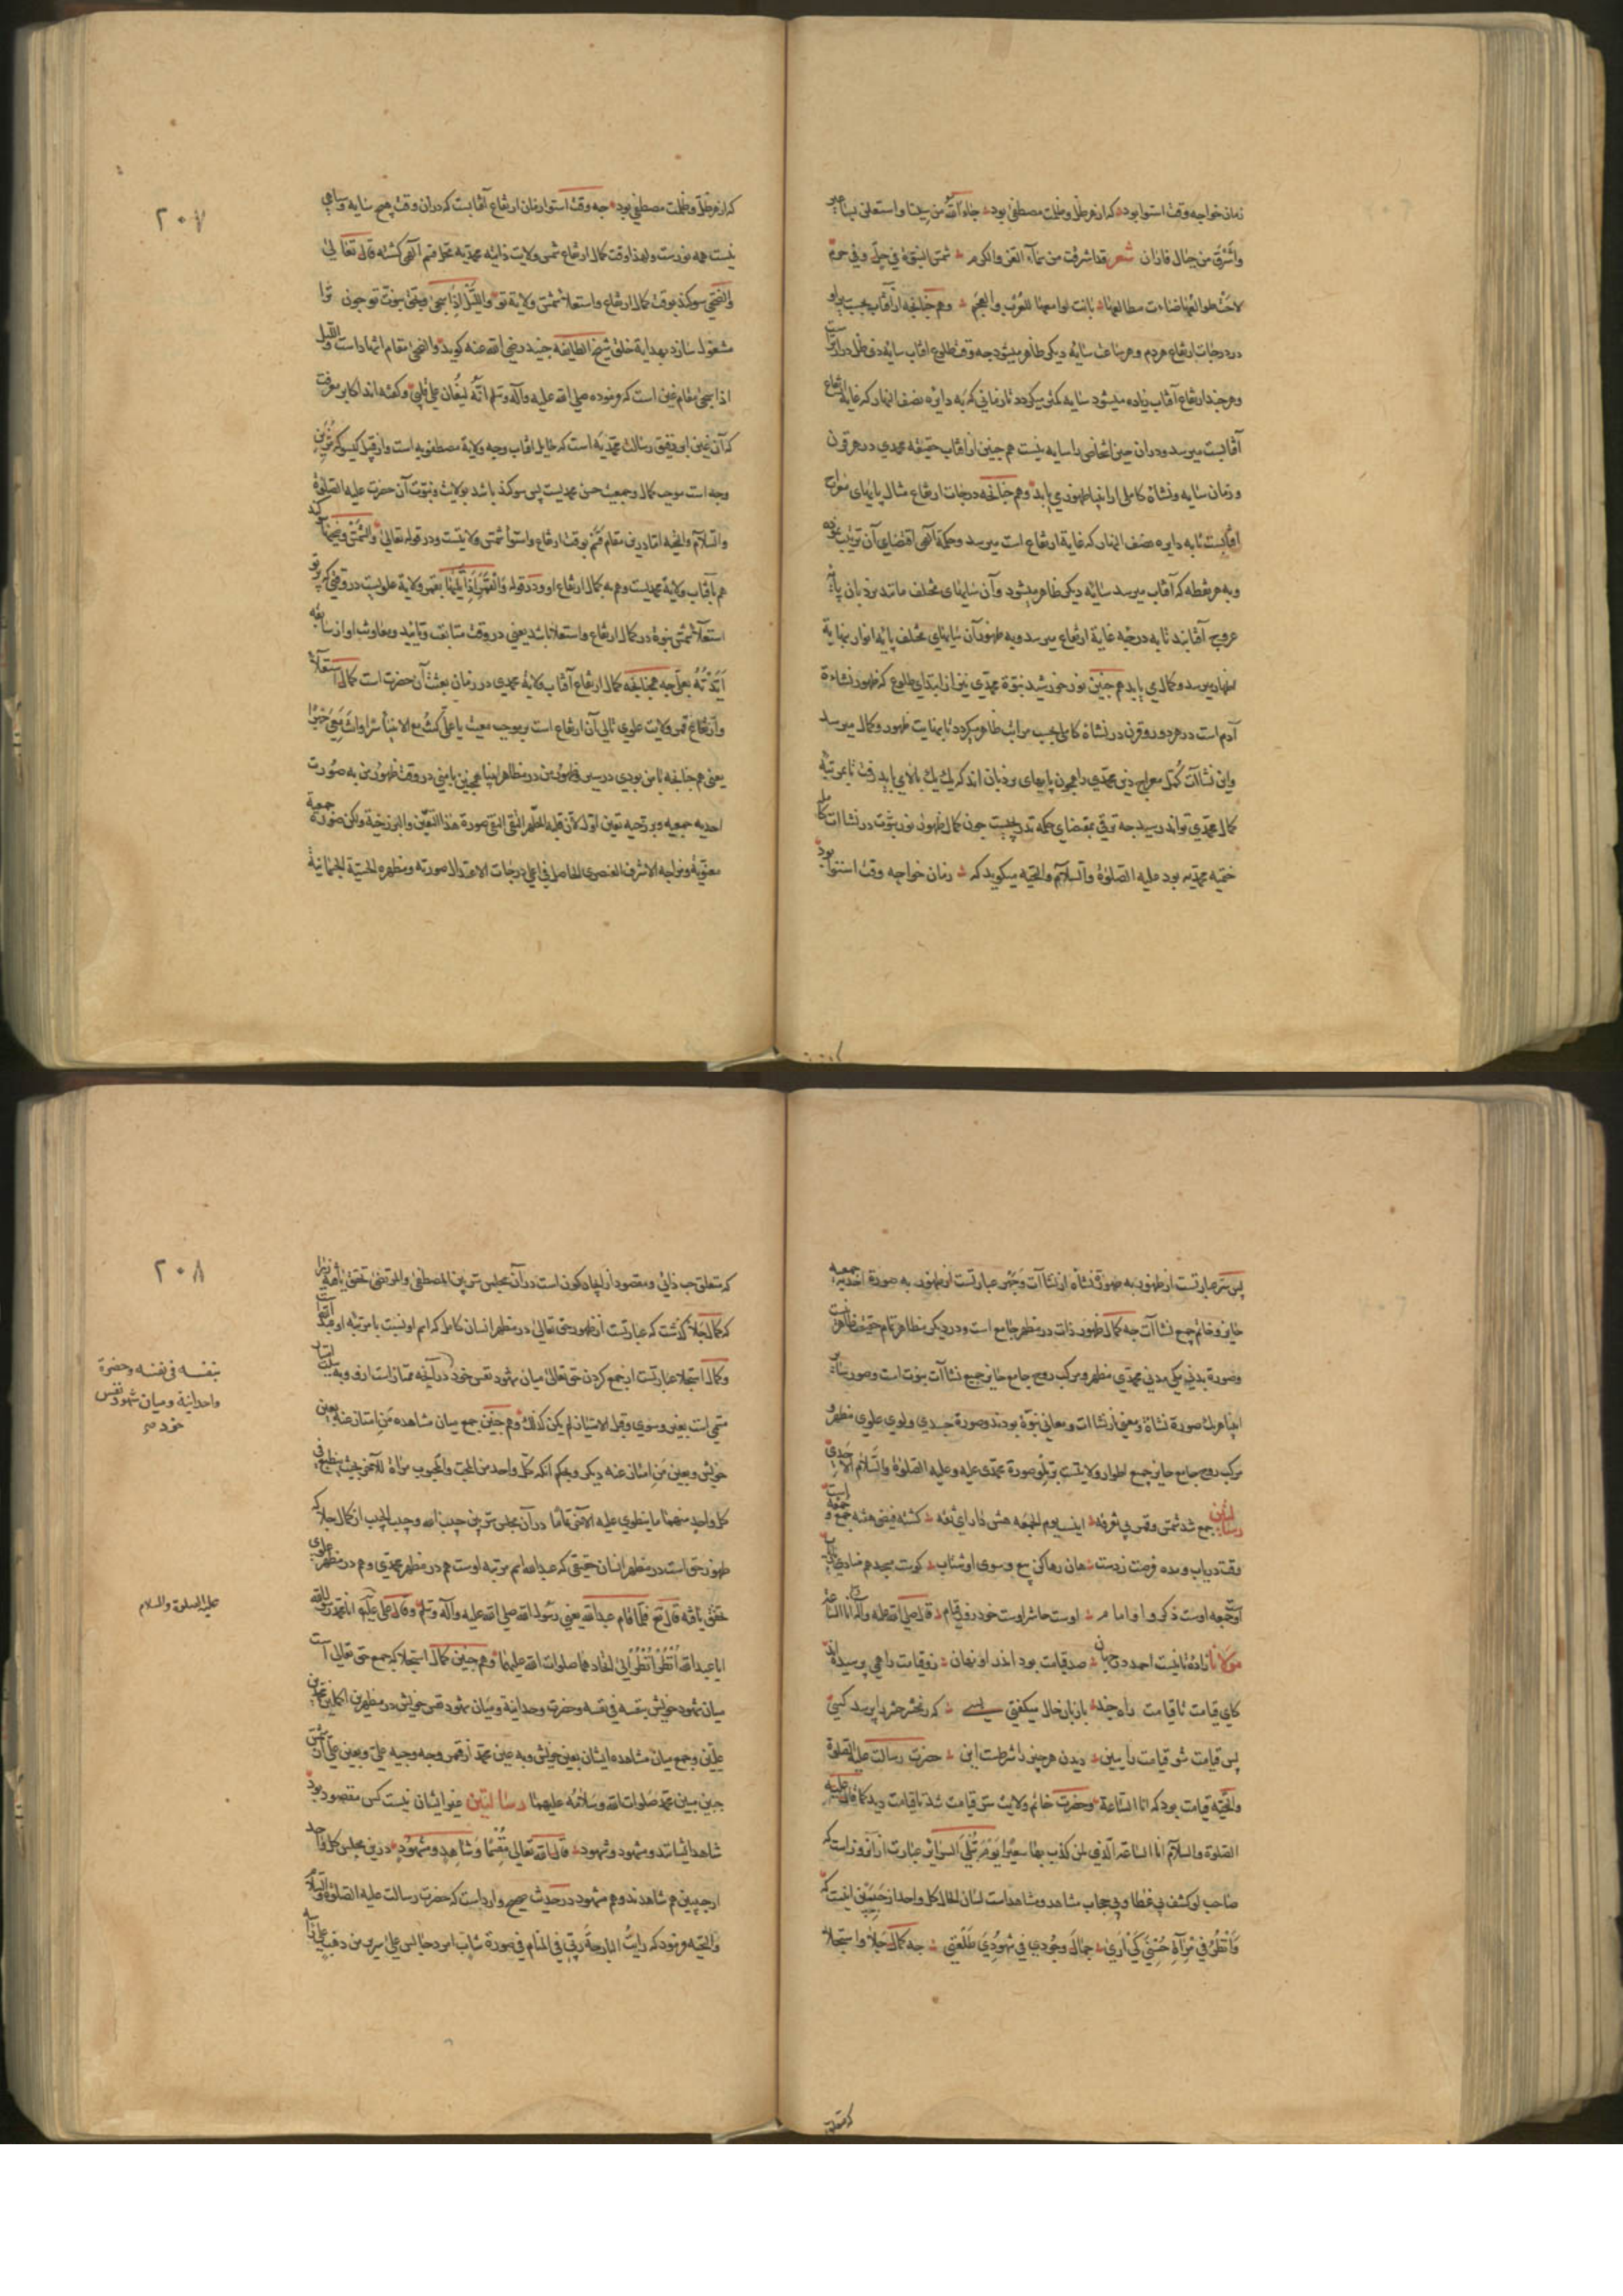 زمان خواجه وقت استوا بود که از هر ظل و ظلمت مصطفی بود جاء الله من سینا و استعلن بساعیر
و اشرق من جبال فاران شعر قد اشرقت من سماء العز والکرم شمس النبوة في حل وفي حرم
لاحت طوالعها ضاءت مطالعها بانت لوامعها للعرب والعجم و هم چنانچه از آفتاب بحسب
در درجات ارتفاع هر دم و هر ساعت سایه دیگر ظاهر میشود چه وقت طلوع آفتاب سایه و ظل دراز
و هر چند ارتفاع آفتاب زیاده میشود سایه کمتر میگردد تا زمانی که به دایره نصف النهار که غایة ارتفاع
آفتابست میرسد و در آن حین اشخاص را سایه نیست هم چنین از آفتاب حقیقه محمدی در هر قرن
و زمان سایه و نشاة کاملی از انبیا ظهور می یابد و هم چنانچه درجات ارتفاع مثال پایهای معراج
آفتابست تا به دایره نصف النهار که غایة ارتفاع است میرسد و حکمة الهی اقتضای آن ترتیب
و به هر نقطه که آفتاب میرسد سایه دیگر ظاهر میشود و آن سایهای مختلف مانند نردبان پایه
عروج آفتابند تا به درجه غایة ارتفاع میرسد و به ظهور آن سایهای مختلف پایه انوار بنهایة
اظهار میرسد و کمال می یابد هم چنین نور خورشید نبوة محمدی نیز از ابتدای طلوع که ظهور نشاءة
آدم است در هر دور و قرن در نشاة کاملی بحسب مراتب ظاهر میگردد تا بنهایت ظهور و کمال میرسد
و این نشاآت کمل معراج دین محمدی را همچون پایهای نردبان اند که یک یک بالا می باید رفت تا بمرتبه
کمال محمدی تواند رسید چه ترقی بمقتضای حکمة تدریجیست چون کمال ظهور نور نبوت در نشاات کامله
ختمیه محمدیه بود علیه الصلوة والسلام والتحیه میگوید که زمان خواجه وقت استوا بود
٢٠٧
که از هر ظل و ظلمت مصطفی بود چه وقت استوا زمان ارتفاع آفتابست که در آن وقت هیچ سایه و سیاهی
نیست همه نورست و لهذا وقت کمال ارتفاع شمس ولایت ذاتیه محمدیه محل قسم الهی گشته قال تعالی
والضحی سوگند بوقت کمال ارتفاع و استعلاء شمس ولایة تو واللیل اذا سجی وبحق نبوت تو چون ترا
مشغول سازد بهدایة خلق شیخ الطایفه جنید رضی الله عنه گوید والضحی مقام اشهادست واللیل
اذا سجی مقام غین است که فرموده صلی الله علیه وآله وسلم انه لیغان علی قلبی و گفته اند اکابر معرفت
که آن غین ابر رقیق رسالت محمدیه است که حایل آفتاب وجه ولایة مصطفویه است و از قبیل گیسو که مزین
وجه است موجب کمال و جمعیت حسن محمدیست پس سوگند باشد بولایت و نبوت آن حضرت علیه الصلوة
والسلام والتحیه اما درین مقام قسم بوقت ارتفاع و استوا شمس ولایتست و در قوله تعالی والشمس وضحیها
هم بآفتاب ولایة محمدیست و هم به کمال ارتفاع او و در قوله والقمر اذا تلیها بقمر ولایة علویست در وقتی که پرتو
استعلاء شمس نبوة در کمال ارتفاع و استعلا باشد یعنی در وقت متابعت و تایید و معاونت او از سابقه
ایدته بعلی چه همچنانچه کمال ارتفاع آفتاب ولایة محمدی در زمان بعثت آن حضرت است کمال استعلاء
و ارتفاع قمر ولایت علوی تالی آن ارتفاع است بر موجب معیت یا علی کنت مع الانبیاء سرا وانت معی جهرا
یعنی هم چنانچه با من بودی در سیر و ظهور من در مظاهر انبیا همچنین با منی در وقت ظهور من به صورت
احدیه جمعیه و برزخیه تعین اول لان قلبه المطهر النقی التقی صورة هذا التعین والبرزخیة ولکن صورة جمعیة
معنویة ومزاجه الاشرف العنصری الحاصل فی اعلی درجات الاعتدال صورته ومظهره الحسیة الجسمانیة
پس سر عبارتست از ظهور به صورة نشاه از نشاآت و جهر عبارتست از ظهور به صورة احدیه جمعیه
حایز و خاتم جمیع نشاآت چه کمال ظهور ذات در مظهر جامع است و در دیگر مظاهر تمام حقیقت ظاهر نیست
وصورة بدنی مکی مدنی محمدی مظهر و مرکب روح جامع حایز جمیع نشاآت نبوت است و صور سایر
انبیا هر یک صورة نشاة و معنی از نشاات و معانی نبوة بودند و صورة جسدی ولوی علوی مظهر و
مرکب روح جامع حایز جمیع اطوار ولایتست بر تلو صورة محمدی علیه وعلیه الصلوة والسلام الابدی
لمن رسا جمع شد شمس و قمر بی تفرقه اینست یوم الجمعه هش دار ای ثقه گشته فیض هشه جمع و جمعه است
وقت دریاب و مده فرصت ز دست هان رها کن بیع و سوی او شتاب کوست مبدء هم منادی
جمعه اوست ذکر و امام اوست حاشر اوست خود روز قیام قال صلی الله علیه وآله انا الساعة
مولانا زاده ثانیست احمد در جهان صد قیامت بود اندر او نهان زو قیامت را همی پرسیده اند
کای قیامت تا قیامت راه چند با زبان حال میگفتی بسی که ز محشر حشر را پرسد کسی
پس قیامت شو قیامت را ببین دیدن هر چیز را شرطست این حضرت رسالت علیه الصلوة
والتحیه قیامت بود که انا الساعة و حضرت خاتم ولایت سر قیامت شد تا قیامت دید کما قال علیه
الصلوة والسلام انا الساعة الذی لمن کذب بها سعیرا یوم تبلی السرائر عبارت از آن روزست که
صاحب لو کشف بی غطا و بی حجاب مشاهد و مشاهدست لسان الحال کل واحد از جیبین اینست که
وانظر فی مرآة حسنی کی اری جمال وجودی فی شهودی طلعتی چه کمال جلا و استجلا
که متعلق
٢٠٨
که متعلق حب ذاتی و مقصود از ایجاد کون است در آن مجلس سر بین المصطفی والمرتضی تحقق یافته زیرا
که کمال جلا گذشت که عبارتست از ظهور حق تعالی در مظهر انسان کامل که اسم او نسبت با مرتبه او عبد الله است
و کمال استجلا عبارتست از جمع کردن حق تعالی میان شهود نفس خود در آنچه ممتازست ازو و به سبب امتیاز
مسمی است بغیر و سوی و قبل الامتیاز لم یکن کذلک و هم چنین جمع میان مشاهده من امتاز عنه بعین
خویش و بعین من امتاز عنه دیگر و بحکم آنکه کل واحد من المحب والمحبوب مرآة للآخر بحیث ینطبع فی
کل واحد منهما ما ینطوی علیه الآخر تماما در آن مجلس سر بین حبیب الله و حبیب الحبیب از کمال جلا که
ظهور حق است در مظهر انسان حقیقی که عبدالله اسم مرتبه اوست هم در مظهر محمدی و هم در مظهر علوی
تحقق یافته قال تع فلما قام عبدالله یعنی رسول الله صلی الله علیه وآله وسلم و قال علی علیه انا عبد الله
انا عبد الله انظروا انظروا الی اتحادهما صلوات الله علیهما و هم چنین کمال استجلا که جمع حق تعالی است
میان شهود خویش بنفسه فی نفسه و حضرت وحدانیة و میان شهود نفس خویش در مظهرین اکملین محمدین
علیین و جمع میان مشاهده ایشان بعین خویش و به عین محمد از قمر وجه وجیه علی و بعین علی از شمس
جبین مبین محمد صلوات الله وسلامه علیهما رسا لمن غیر ایشان نیست کس مقصود بود
شاهد ایشانند و مشهود و شهود قال الله تعالی مقسما و شاهد و مشهود درین مجلس کل واحد
از حبیبین هم شاهدند و هم مشهود در حدیث صحیح وارد است که حضرت رسالت علیه الصلوة والسلام
والتحیه فرمود که رایت البارحة ربی فی المنام فی صورة شاب امرد جالس علی سریر من ذهب علی
بنفسه فی نفسه وحضرة
واحدانیة و میان شهود نفس
خود صح
علیه الصلوة والسلام